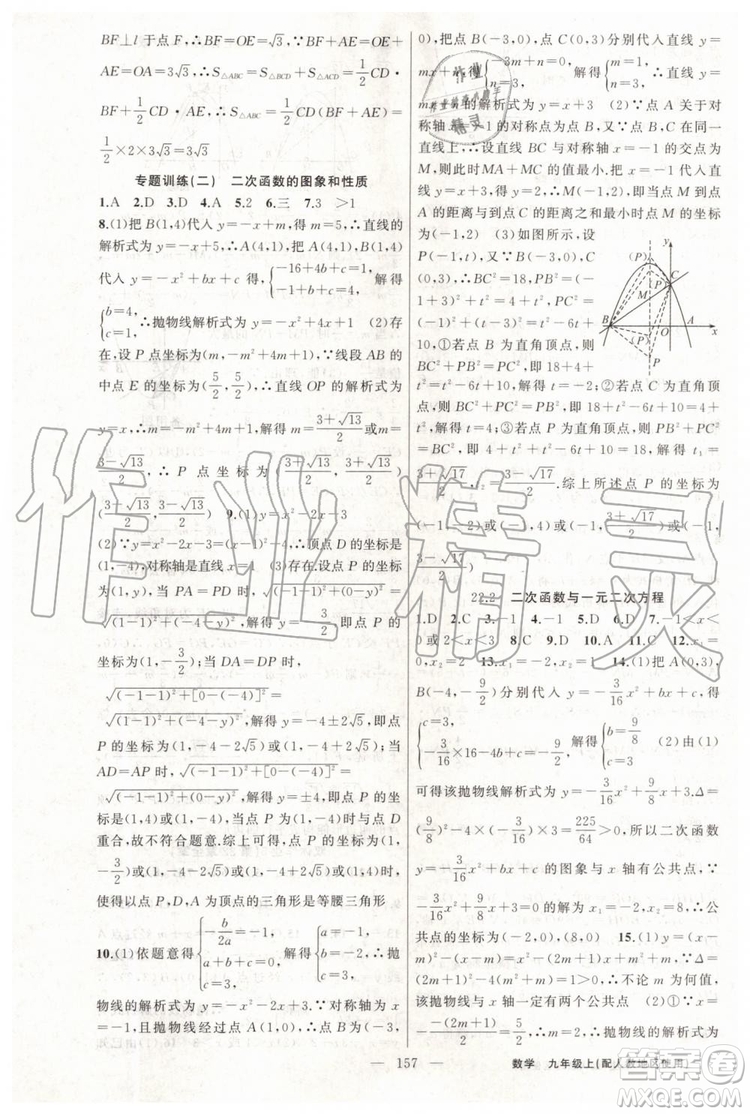 BF⊥l于点F,∴四边形OFAE是矩形,∴BF+
AE=OA=3√3,∴S△ABC=S△BCD+S△ACD=1/2CD·
BF+1/2CD·AE,∴S△ABC=1/2CD(BF+AE)=
1/2×2×3√3=3√3
专题训练(二) 二次函数的图象和性质
1.A 2.D 3.D 4.A 5.2 6.三 7.3 >1
8.(1)把B(4,1)代入y=-x+m,得m=5,∴直线的
解析式为y=-x+5,∴A(4,1),把A(4,1),B(1,4)
代入y=-x²+bx+c得,{-16+4b+c=1, -1+b+c=4, 解得
{b=4, c=1,∴抛物线解析式为y=-x²+4x+1 (2)存
在,设P点坐标为(m,-m²+4m+1),∵线段AB的
中点E的坐标为(5/2,5/2),∴直线OP的解析式为
y=x,∴m=-m²+4m+1,解得m=(3+√13)/2或m=
(3-√13)/2,∴P点坐标为((3+√13)/2,(3+√13)/2)或
((3-√13)/2,(3-√13)/2) 9.(1)y=x²-2x-3
(2)∵y=x²-2x-3=(x-1)²-4,∴顶点D的坐标是
(1,-4),对称轴是直线x=1;(3)存在,设点P的坐标
为(0,y),当PA=PD时,√(-1-0)²+(0-y)²=
√(-1-0)²+(-4-y)²,解得y=-3/2,即点P的
坐标为(0,-3/2);当DA=DP时,
√(-1-1)²+[0-(-4)]²=
√(-1-0)²+(-4-y)²,解得y=-4±2√5,即点
P的坐标为(0,-4-2√5)或(0,-4+2√5);当
AD=AP时,√(-1-1)²+[0-(-4)]²=
√(-1-0)²+(0-y)²,解得y=±4,即点P的坐标是
(0,4)或(0,-4),
重合,故不符合题意.综上可得,点P的坐标为(0,-
3/2)或(0,-4-2√5)或(0,-4+2√5)或(0,4)时,
使得以点P,D,A为顶点的三角形是等腰三角形
10.(1)依题意得{-b/2a=-1, a+b+c=0, c=3,解得{a=-1, b=-2, c=3,∴抛
物线的解析式为y=-x²-2x+3.∵对称轴为x=
-1,且抛物线经过点A(1,0),∴点B的坐标为(-3,
0),把点B(-3,0),点C(0,3)分别代入直线y=
mx+n,得 解得{m=1, n=3,∴直线y=
mx+n的解析式为y=x+3 (2)∵点A关于对
称轴x=-1的对称点为点B,
直线BC与对称轴x=-1的交点为
M,则此时MA+MC的值最小,
A的距离与到点C的距离之和最小时点M的坐标
为(-1,2) (3)如图所示,设
P(-1,t),又∵B(-3,0),C
(0,3),∴BC²=18,PB²=(-1
+3)²+t²=4+t²,PC²=
(-1)²+(t-3)²=t²-6t+
10,①若点B为直角顶点,则
BC²+PB²=PC²,即18+4+
t²=t²-6t+10,解得t=-2;②若点C为直角顶
点,则BC²+PC²=PB²,即18+t²-6t+10=4+t²,
解得t=4;③若点P为直角顶点,则PB²+PC²=
BC²,即4+t²+t²-6t+10=18,解得t₁=
(3+√17)/2,t₂=(3-√17)/2.综上所述点P的坐标为
(-1,-2)或(-1,4)或(-1,(3+√17)/2)或(-1,
(3-√17)/2)
(P)
P
M
C
B
O
A
x
y
(P)
22.2 二次函数与一元二次方程
1.D 2.-1<x<3 3.-1 4.-1 5.D 6.D 7.x<
0或x>2 8.C 9.D 10.A 11.C 12.x₁=
0,x₂=2 13.-5 14.(1)把A(0,3),
B(-4,-9/2)分别代入y=-3/16x²+bx+c,得
{c=3, -3/16×16-4b+c=-9/2,解得{b=9/8, c=3 (2)由(1)
可得该抛物线解析式为y=-3/16x²+9/8x+3,Δ=
(9/8)²-4×(-3/16)×3=225/64>0,所以二次函数
y=-3/16x²+bx+c的图象与x轴有公共点.∵
-3/16x²+9/8x+3=0的解为x₁=-2,x₂=8,∴公
共点的坐标为(-2,0),(8,0) 15.(1)∵Δ=
(2m+1)²-4(m²+m)=1>0,∴不论m为何值,
该抛物线与x轴一定有两个公共点 (2)①∵x=
-(-(2m+1))/2=5/2,∴m=2,∴抛物线的解析式为
157
数学 九年级上(配人教地区使用)
作业精灵